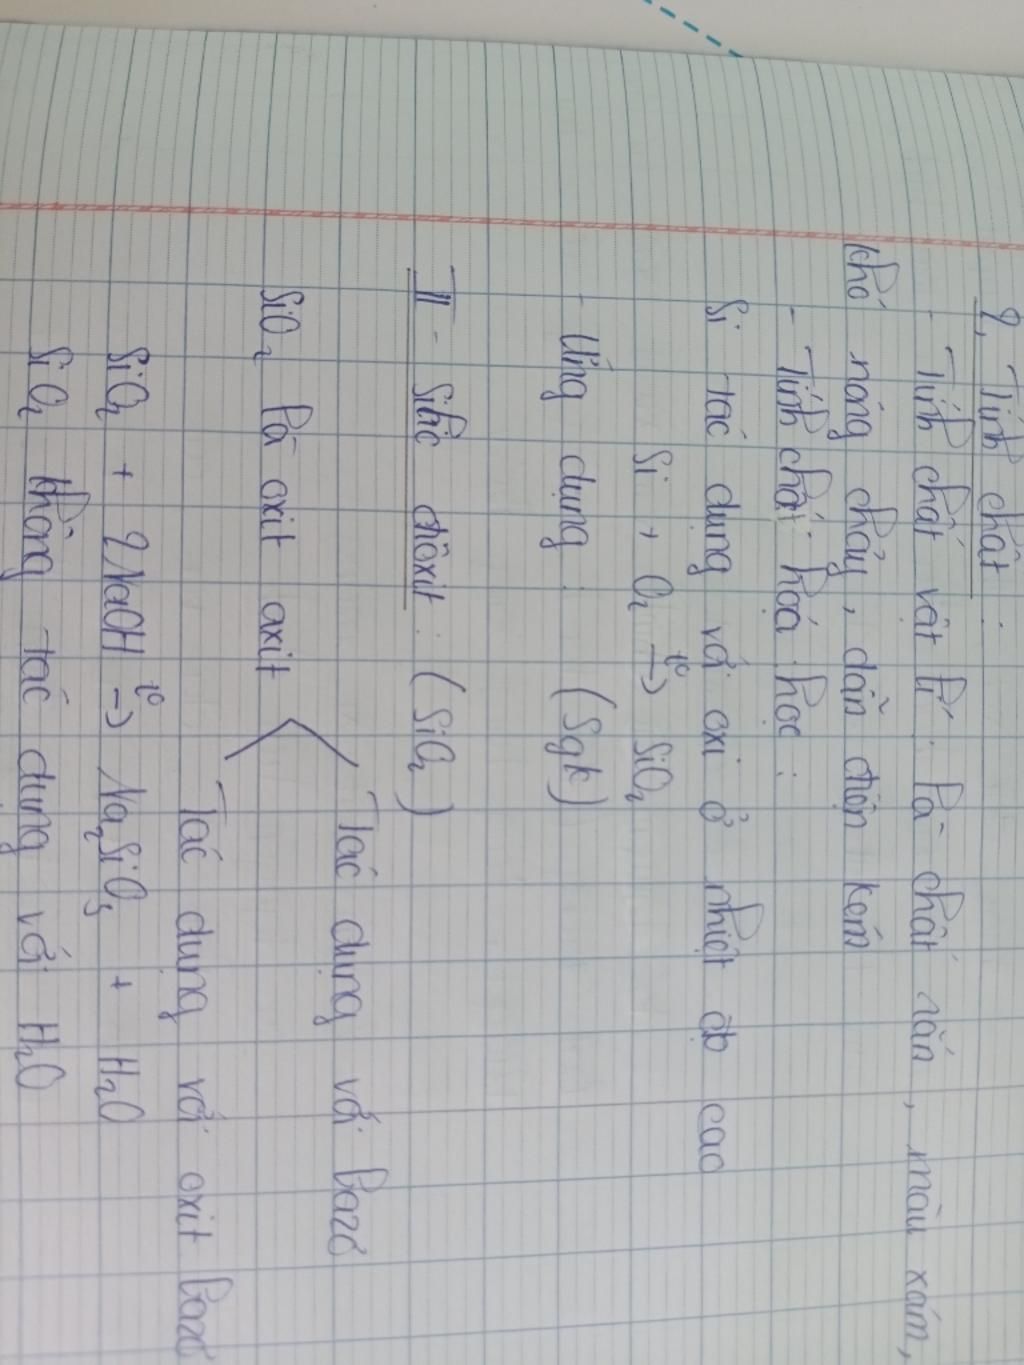 2, Tính chất :
- Tính chất vật lí : là chất rắn, màu xám,
khó nóng chảy, dẫn điện kém
- Tính chất hoá học :
Si tác dụng với oxi ở nhiệt độ cao
Si + O₂ –t°→ SiO₂
- Ứng dụng : (Sgk)
II - Silic đioxit : (SiO₂)
Tác dụng với bazơ
SiO₂ là oxit axit <
Tác dụng với oxit bazơ
SiO₂ + 2NaOH –t°→ Na₂SiO₃ + H₂O
SiO₂ không tác dụng với H₂O